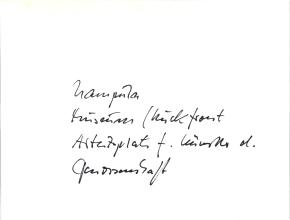 Nampula
Museum / Rückfront
Arbeitsplatz f. Künstler d.
Genossenschaft